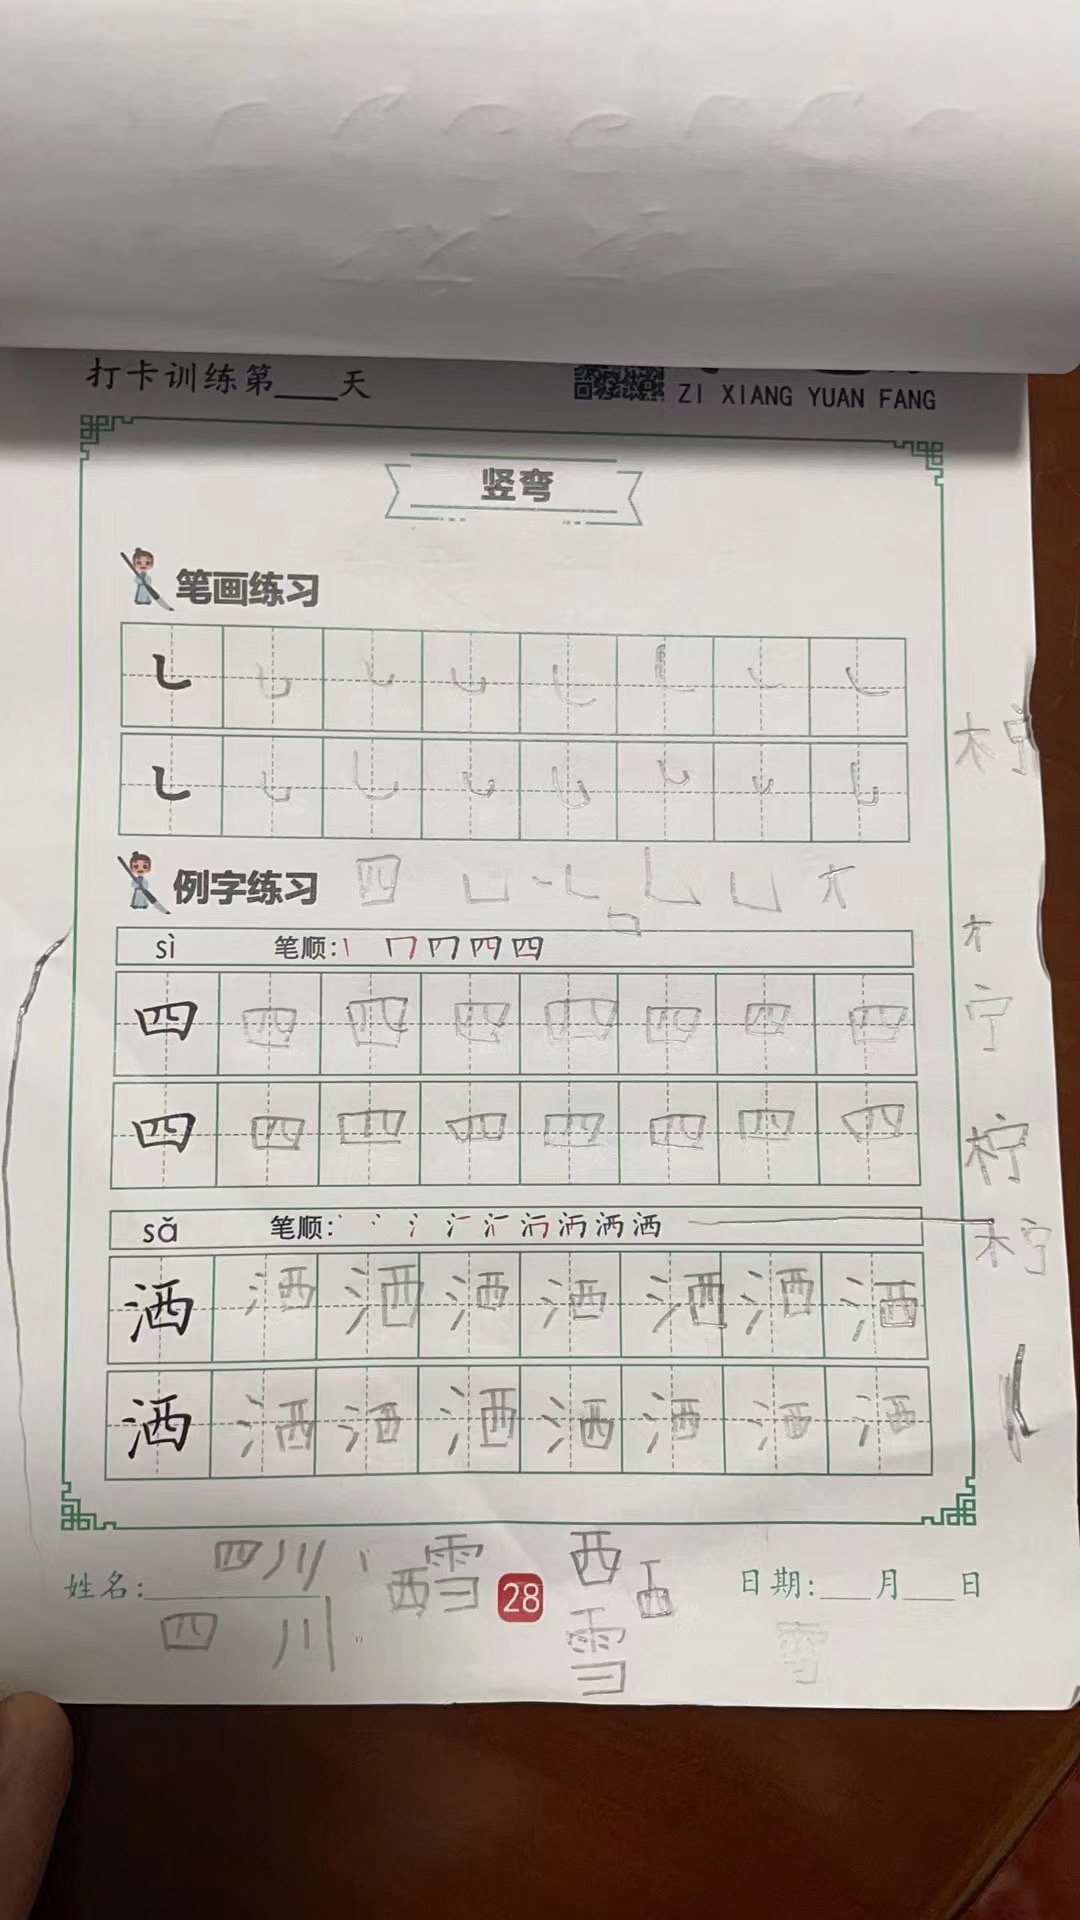 打卡训练第____天
ZI XIANG YUAN FANG
竖弯
笔画练习
㇄
㇄
例字练习 四
sì 笔顺: 丨 冂 四 四
四 四 四 四 四 四 四 四
四 四 四 四 四 四 四 四
sǎ 笔顺: 洒 洒
洒 洒 洒 洒 洒 洒 洒 洒
洒 洒 洒 洒 洒 洒 洒 洒
柠
木
宁
柠
柠
四川 雪 西
姓名: 西 28 西 日期:___月___日
四 川 雪 雪